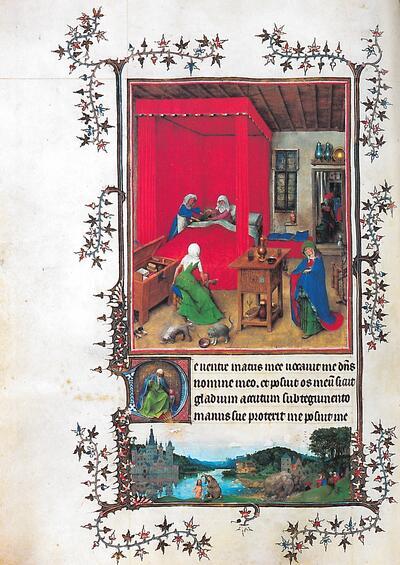 De ventre matris mee vocavit me dn̄s
nomine meo. et posuit os meū sicut
gladium acutum sub tegumento
manus sue protexit me posuit me